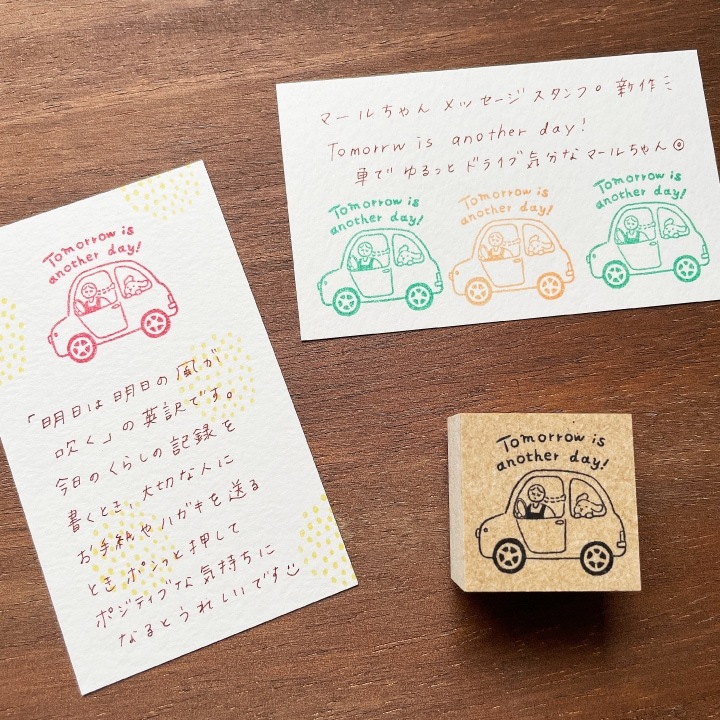 マールちゃん メッセージスタンプ。新作ミ
Tomorrw is another day!
車で ゆるっと ドライブ気分な マールちゃん◎
Tomorrow is
another day!
Tomorrow is
another day!
Tomorrow is
another day!
Tomorrow is
another day!
「明日は明日の風が
吹く」の英訳です。
今日のくらしの記録を
書くとき、大切な人に
お手紙やハガキを送る
とき ポンっと押して
ポジティブな気持ちに
なるとうれしいです
Tomorrow is
another day!